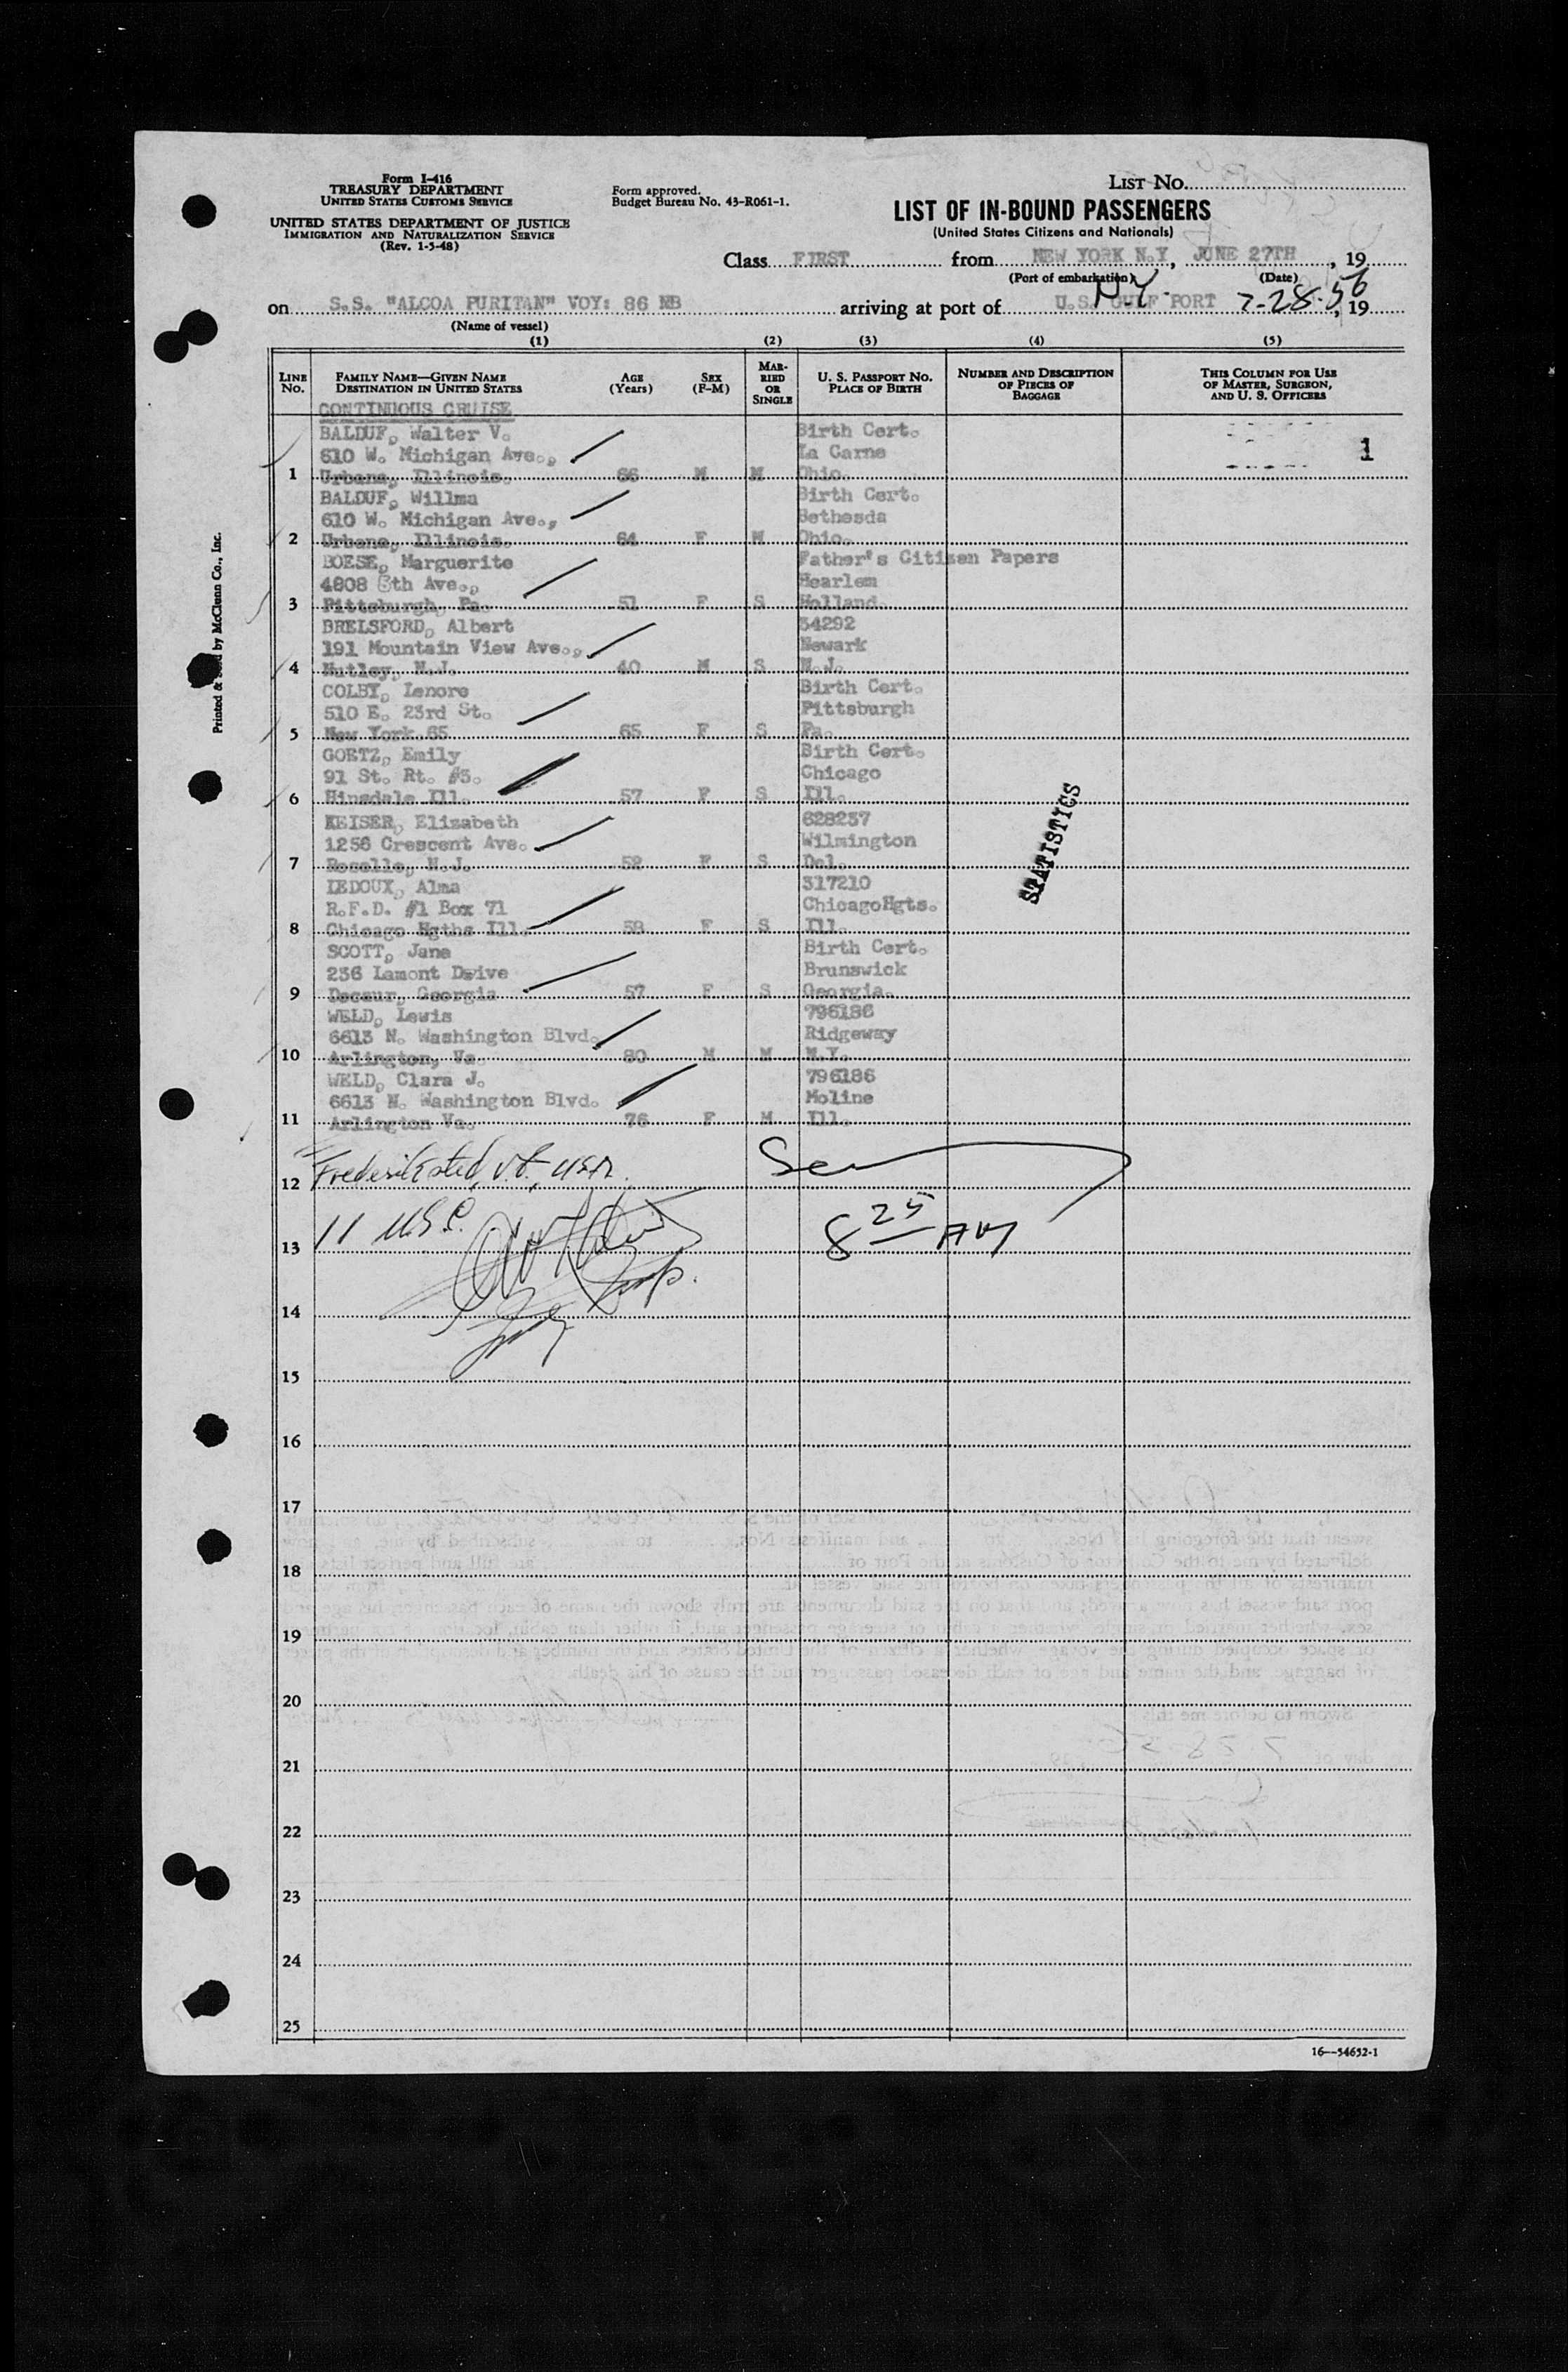 Form I-416
TREASURY DEPARTMENT
UNITED STATES CUSTOMS SERVICE
UNITED STATES DEPARTMENT OF JUSTICE
IMMIGRATION AND NATURALIZATION SERVICE
(Rev. 1-3-48)
Form approved.
Budget Bureau No. 43-R061-1.
LIST NO.
LIST OF IN-BOUND PASSENGERS
(United States Citizens and Nationals)
Class FIRST from NEW YORK N.Y, JUNE 27TH, 19
(Port of embarkation) (Date)
on S.S. "ALCOA PURITAN" VOY: 86 NB arriving at port of U.S. GULF PORT N.Y. 7-28-56, 19
(Name of vessel)
(1) (2) (3) (4) (5)
LINE No. FAMILY NAME—GIVEN NAME DESTINATION IN UNITED STATES AGE (Years) SEX (F-M) MARRIED OR SINGLE U. S. PASSPORT NO. PLACE OF BIRTH NUMBER AND DESCRIPTION OF PIECES OF BAGGAGE THIS COLUMN FOR USE OF MASTER, SURGEON, AND U. S. OFFICERS
CONTINUOUS CRUISE
BALDUF, Walter V. Birth Cert.
610 W. Michigan Ave., La Carne 1
1 Urbana, Illinois. 66 M M Ohio.
BALDUF, Willma Birth Cert.
610 W. Michigan Ave., Bethesda
2 Urbana, Illinois. 64 F M Ohio.
BOESE, Marguerite Father's Citizen Papers
4808 5th Ave., Hearlem
3 Pittsburgh, Pa. 51 F S Holland.
BRELSFORD, Albert 54292
191 Mountain View Ave., Newark
4 Nutley, N.J. 40 M S N.J.
COLBY, Lenore Birth Cert.
510 E. 23rd St. Pittsburgh
5 New York 65 F S Pa.
GOETZ, Emily Birth Cert.
91 St. Rt. #3. Chicago
6 Hinsdale Ill. 57 F S Ill.
KEISER, Elizabeth 628237
1256 Crescent Ave. Wilmington
7 Roselle, N.J. 52 F S Del.
LEDOUX, Alma 317210
R.F.D. #1 Box 71 ChicagoHgts.
8 Chicago Hgths Ill. 58 F S Ill.
SCOTT, Jane Birth Cert.
236 Lamont Dwive Brunswick
9 Decaur, Georgia 57 F S Georgia.
WELD, Lewis 796186
6613 N. Washington Blvd. Ridgeway
10 Arlington, Va. 80 M M N.Y.
WELD, Clara J. 796186
6613 N. Washington Blvd. Moline
11 Arlington Va. 76 F M Ill.
STATISTICS
12 Frederiksted, V.I., USA.
13 11 USC. 8 25 AM
14
15
16
17
18
19
20
21
22
23
24
25
16—54652-1
Printed & by McClunn Co., Inc.